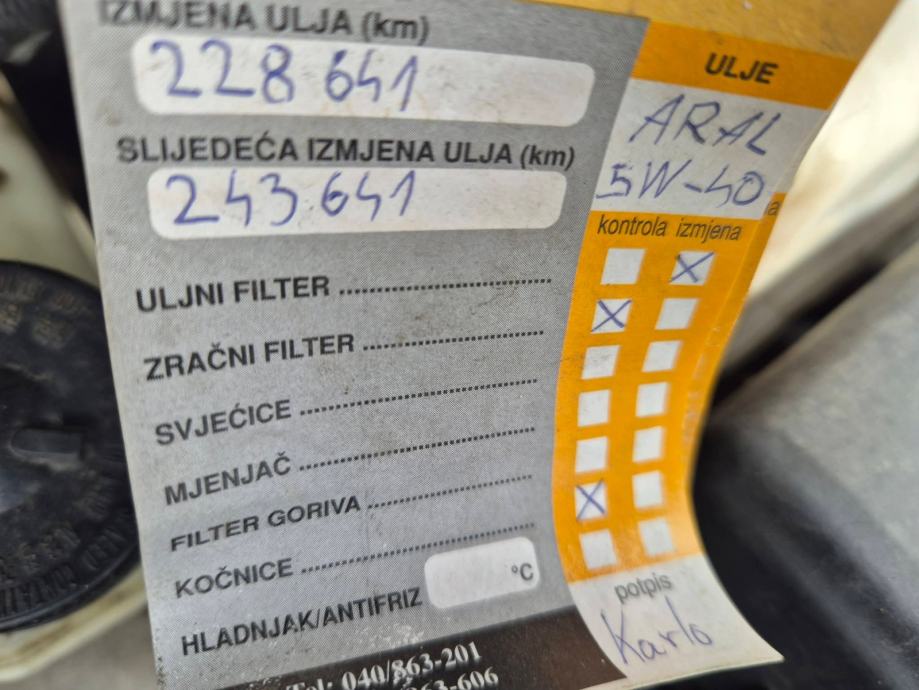 IZMJENA ULJA (km)
228 641
SLIJEDEĆA IZMJENA ULJA (km)
243 641
ULJNI FILTER
ZRAČNI FILTER
SVJEĆICE
MJENJAČ
FILTER GORIVA
KOČNICE
HLADNJAK/ANTIFRIZ °C
Tel: 040/863-201
863-606
ULJE
ARAL
5W-40
a
kontrola izmjena
X
X
X
potpis
Karlo